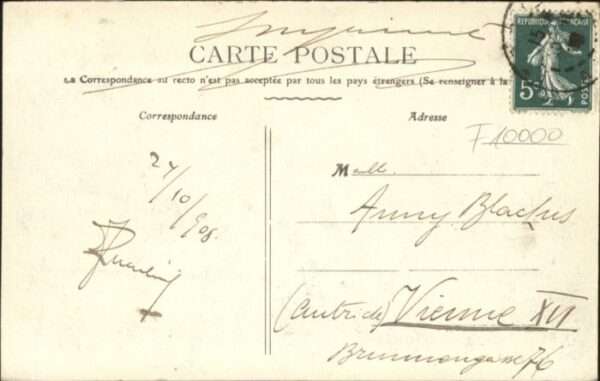 Imprimé
CARTE POSTALE
La Correspondance au recto n'est pas acceptée par tous les pays étrangers (Se renseigner à la
Correspondance
Adresse
REPUBLIQUE FRANÇAISE
15
5c
POSTES
F 10000
24/10/908.
Mlle.
Anny
(Autriche) Vienne XII
76